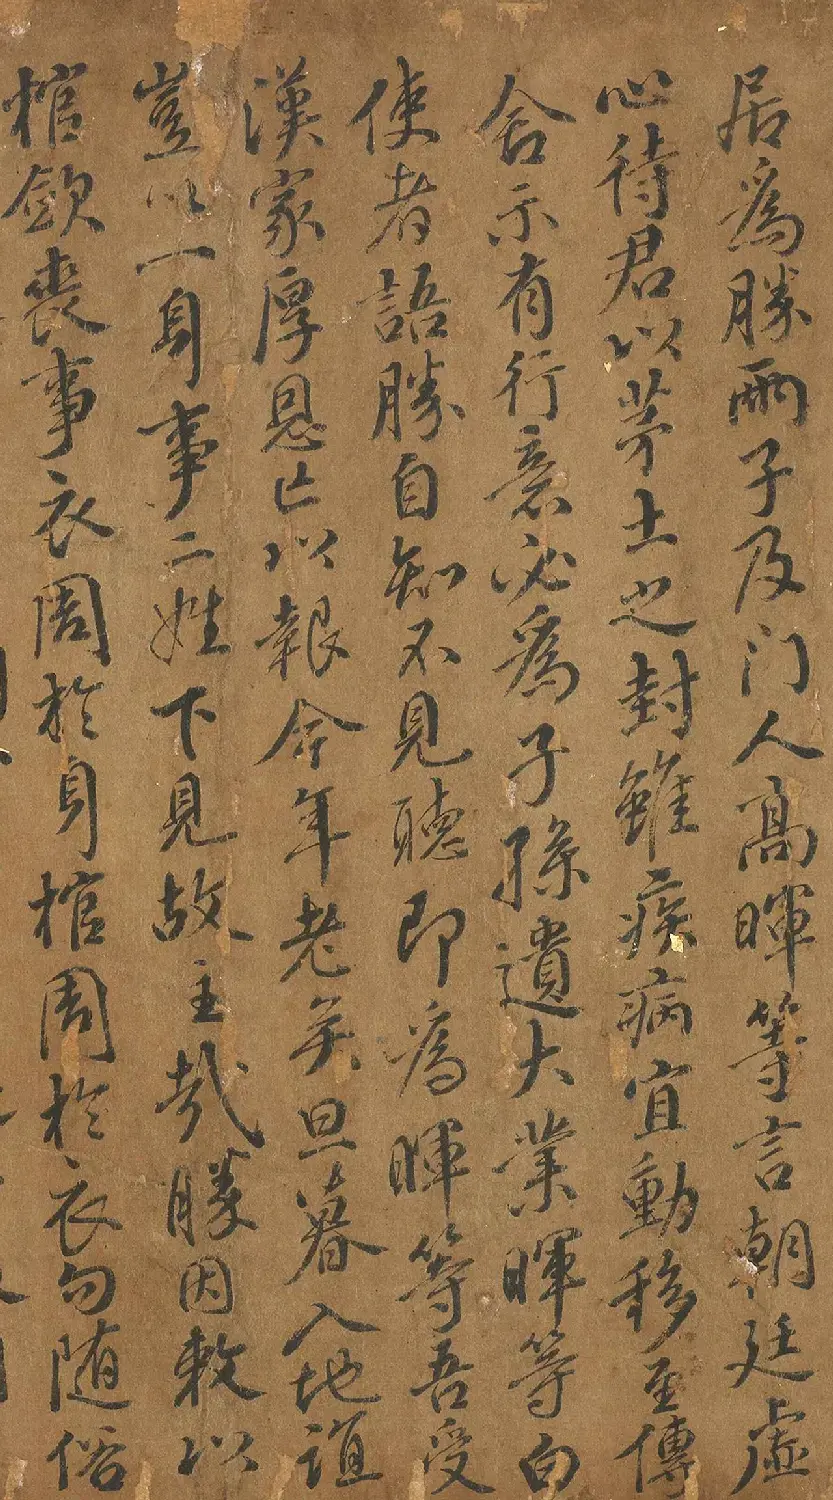 居為勝兩子及门人高暉等言朝廷虛
心待君以茅土之封雖疾病宜動移至傳
舍示有行意必為子孫遺大業暉等白
使者語勝自知不見聽即為暉等吾受
漢家厚恩亡以報今年老矣旦暮入地誼
豈以一身事二姓下見故主哉勝因敕以
棺歛喪事衣周於身棺周於衣勿随俗